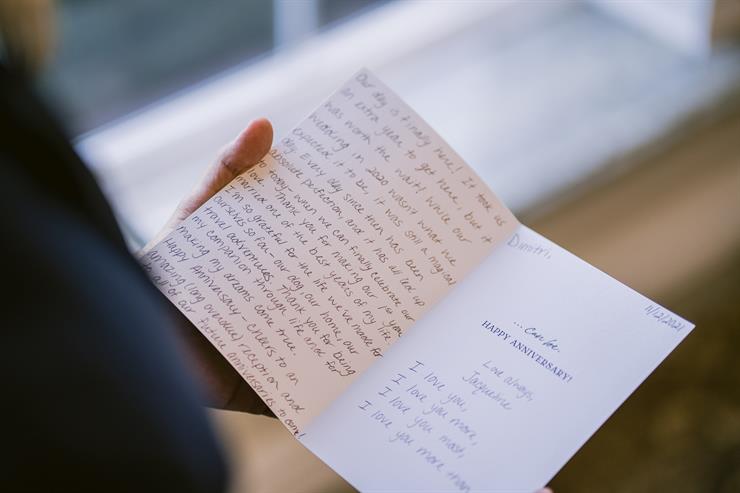 Our day is finally here! It took us
an extra year to get here, but it
was worth the wait! While our
wedding in 2020 wasn't what we
expected it to be, it was still a magical
day. Every day since then has been
absolute perfection, and it has all led up
to today - when we can finally celebrate our
love. Thank you for making our 1st year
married one of the best years of my life.
I'm so grateful for the life we've made for
ourselves so far - our day, our home, our
travel adventures. Thank you for being
my companion through life and for
making my dreams come true.
Happy Anniversary - cheers to an
amazing (long overdue) reception and
to all of our future anniversaries to come!
11/12/2021
Dimitri,
HAPPY ANNIVERSARY!
Love always,
Jacqueline
I love you,
I love you more,
I love you most,
I love you more than